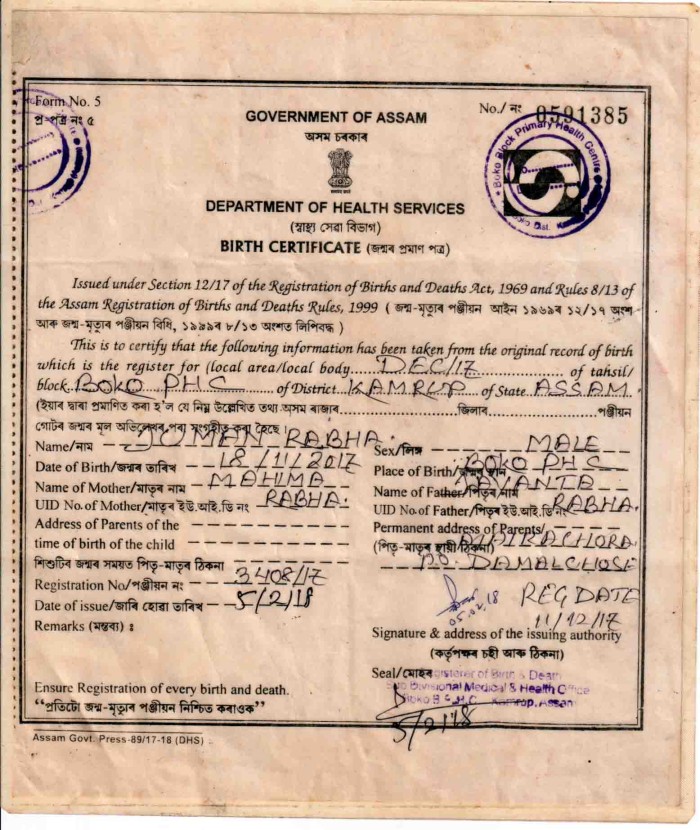 Form No. 5
প্ৰ-পত্ৰ নং ৫
No./ নং 0591385
GOVERNMENT OF ASSAM
অসম চৰকাৰ
Boko Block Primary Health Centre
DEPARTMENT OF HEALTH SERVICES
(স্বাস্থ্য সেৱা বিভাগ)
BIRTH CERTIFICATE (জন্মৰ প্ৰমাণ পত্ৰ)
Issued under Section 12/17 of the Registration of Births and Deaths Act, 1969 and Rules 8/13 of
the Assam Registration of Births and Deaths Rules, 1999 ( জন্ম-মৃত্যুৰ পঞ্জীয়ন আইন ১৯৬৯ৰ ১২/১৭ অংশ
আৰু জন্ম-মৃত্যুৰ পঞ্জীয়ন বিধি, ১৯৯৯ৰ ৮/১৩ অংশত লিপিবদ্ধ )
This is to certify that the following information has been taken from the original record of birth
which is the register for (local area/local body DEC/17 of tahsil/
block BOKO PHC of District KAMRUP of State ASSAM.
(ইয়াৰ দ্বাৰা প্ৰমাণিত কৰা হ'ল যে নিম্ন উল্লেখিত তথ্য অসম ৰাজ্যৰ জিলাৰ পঞ্জীয়ন
গোটৰ জন্মৰ মূল অভিলেখৰ পৰা সংগৃহীত কৰা হৈছে।
Name/নাম RABHA.
Sex/লিঙ্গ MALE
Date of Birth/জন্মৰ তাৰিখ 18/11/2017
Place of Birth/জন্মৰ স্থান BOKO PHC
Name of Mother/মাতৃৰ নাম MAHIMA
Name of Father/পিতৃৰ নাম JAYANTA
UID No. of Mother/মাতৃৰ ইউ.আই.ডি নং RABHA.
UID No. of Father/পিতৃৰ ইউ.আই.ডি নং RABHA.
Address of Parents of the
Permanent address of Parents/
time of birth of the child
(পিতৃ-মাতৃৰ স্থায়ী ঠিকনা)
শিশুটিৰ জন্মৰ সময়ত পিতৃ-মাতৃৰ ঠিকনা
Registration No/পঞ্জীয়ন নং 3408/17
Date of issue/জাৰি হোৱা তাৰিখ 5/2/18
05.02.18
REG DATE
11/12/17
Remarks (মন্তব্য) :
Signature & address of the issuing authority
(কৰ্তৃপক্ষৰ চহী আৰু ঠিকনা)
Seal/মোহৰ
Registerer of Birth & Death
Sub Divisional Medical & Health Office
Boko B.P.H.C. Kamrup, Assam
5/2/18
Ensure Registration of every birth and death.
“প্ৰতিটো জন্ম-মৃত্যুৰ পঞ্জীয়ন নিশ্চিত কৰাওক”
Assam Govt. Press-89/17-18 (DHS)